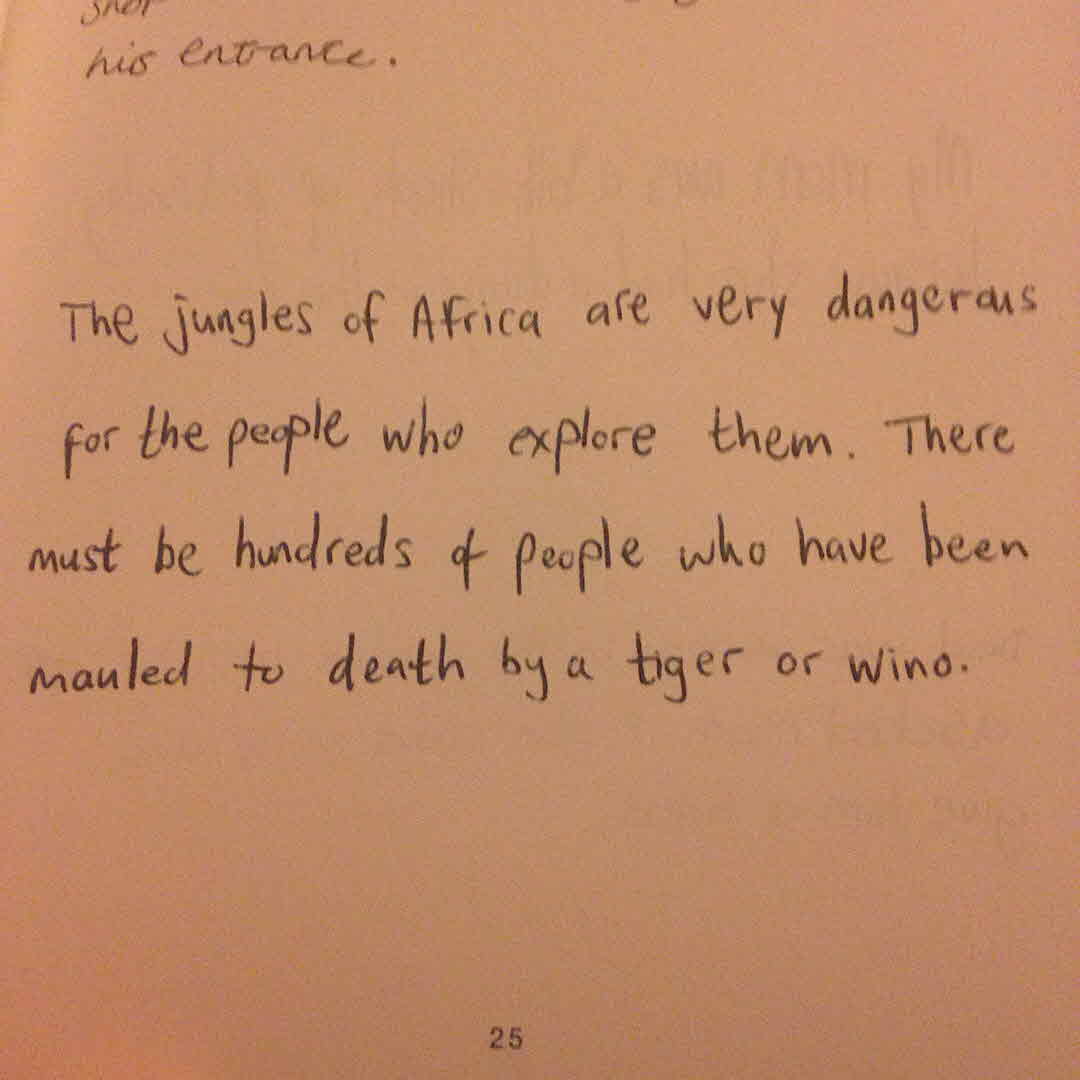 his entrance.
The jungles of Africa are very dangerous
for the people who explore them. There
must be hundreds of people who have been
mauled to death by a tiger or wino.
25